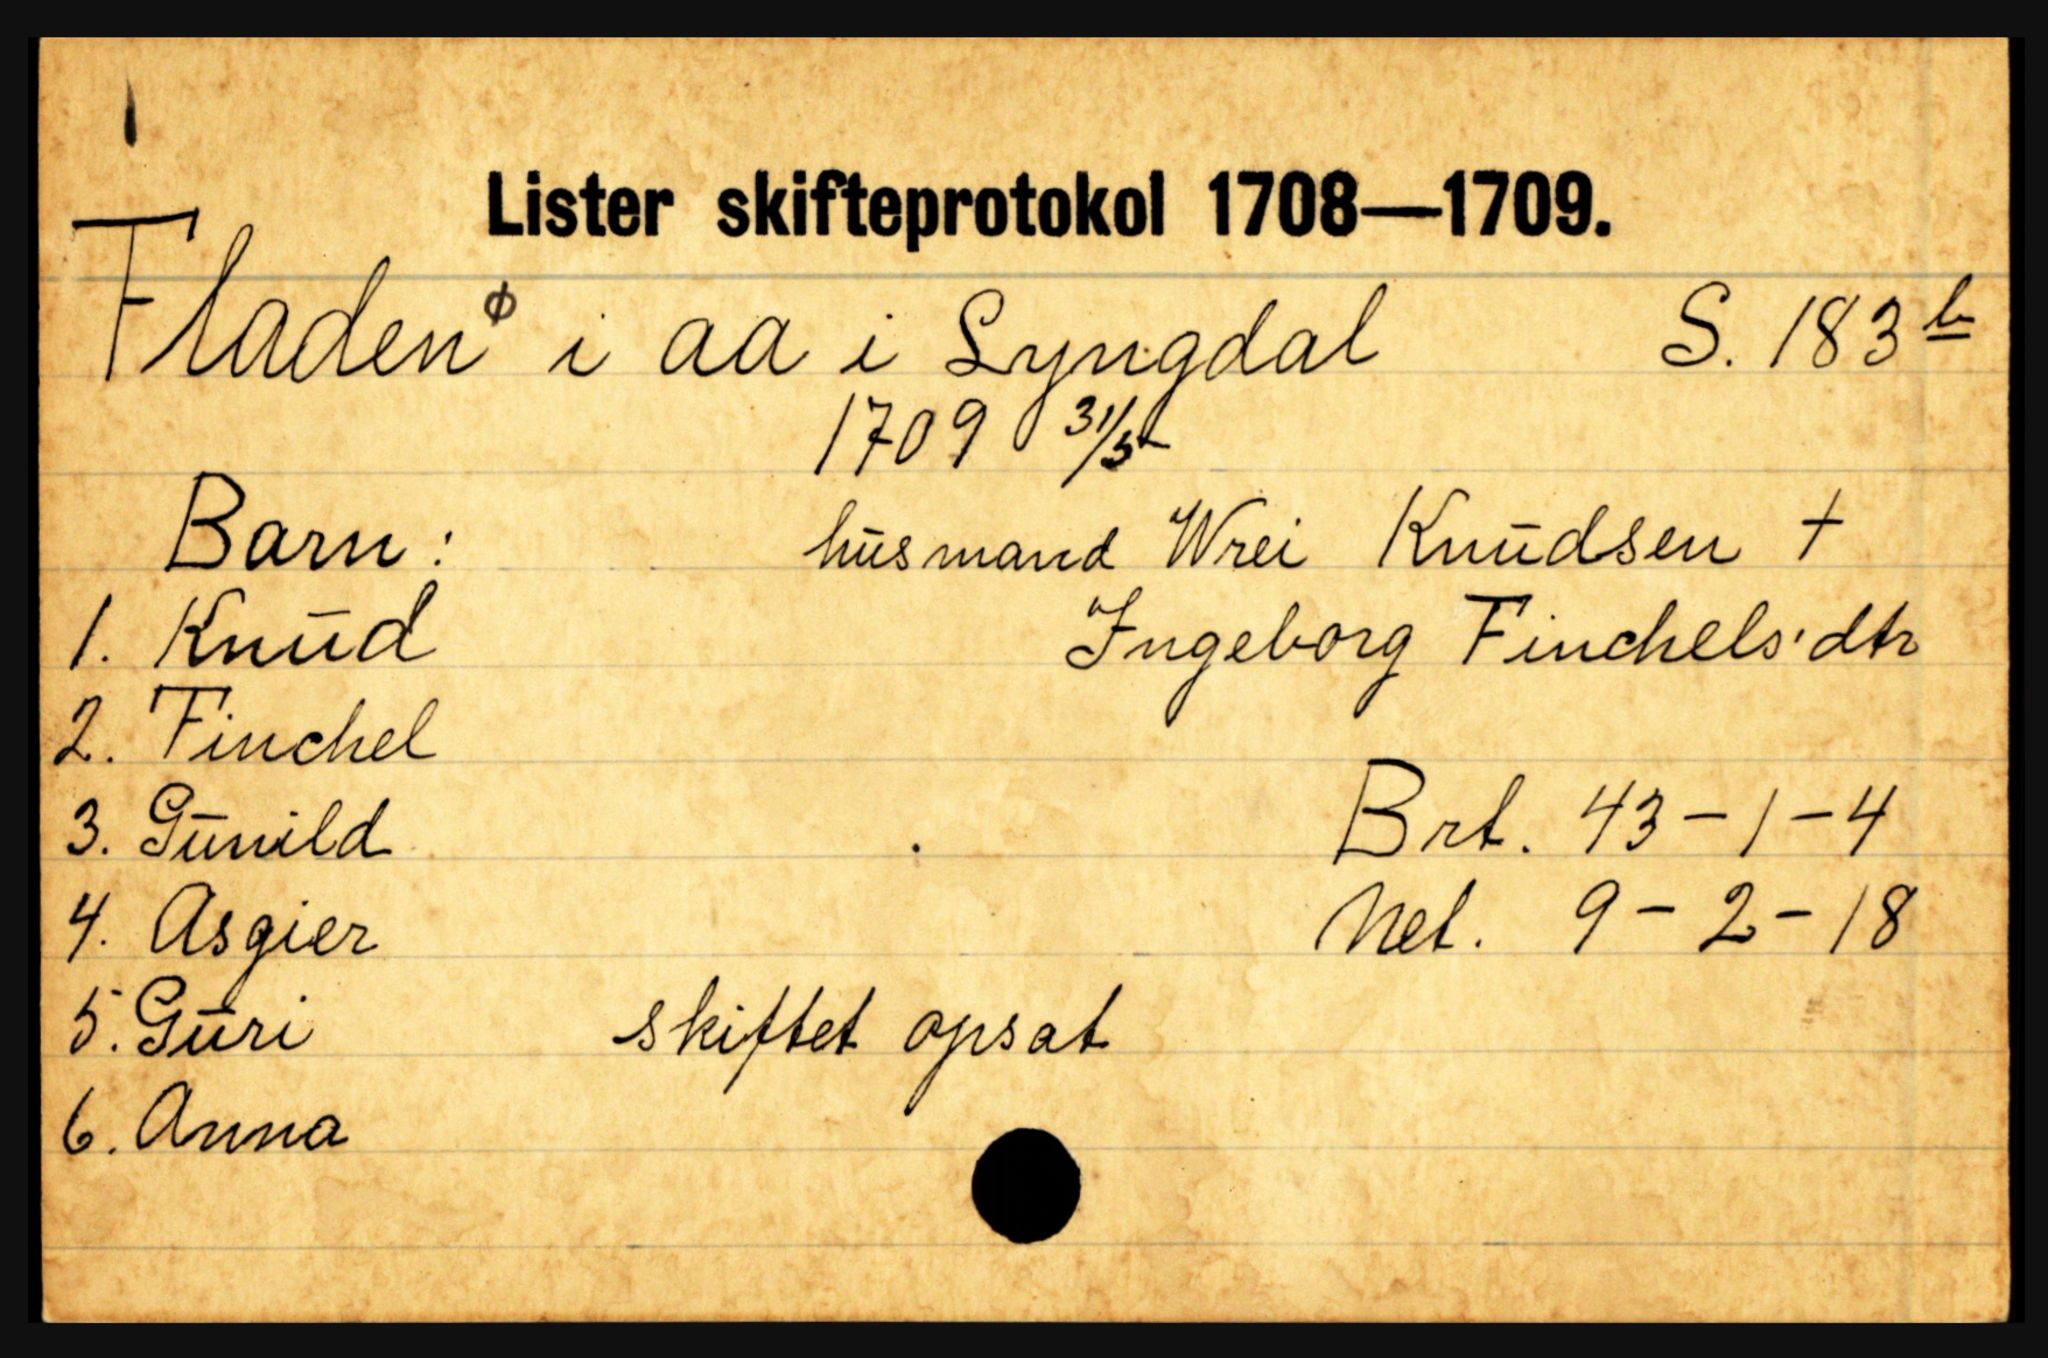 Lister skifteprotokol 1708—1709.
Fladen ø i aa i Lyngdal S. 183 b
1709 31/5
Barn: hūsmand Wrei Knūdsen †
1. Knūd Ingeborg Finchels.dtr
2. Finchel
3. Gūnild Brt. 43-1-4
4. Asgier Net. 9-2-18
5. Gūri skiftet opsat
6. Anna